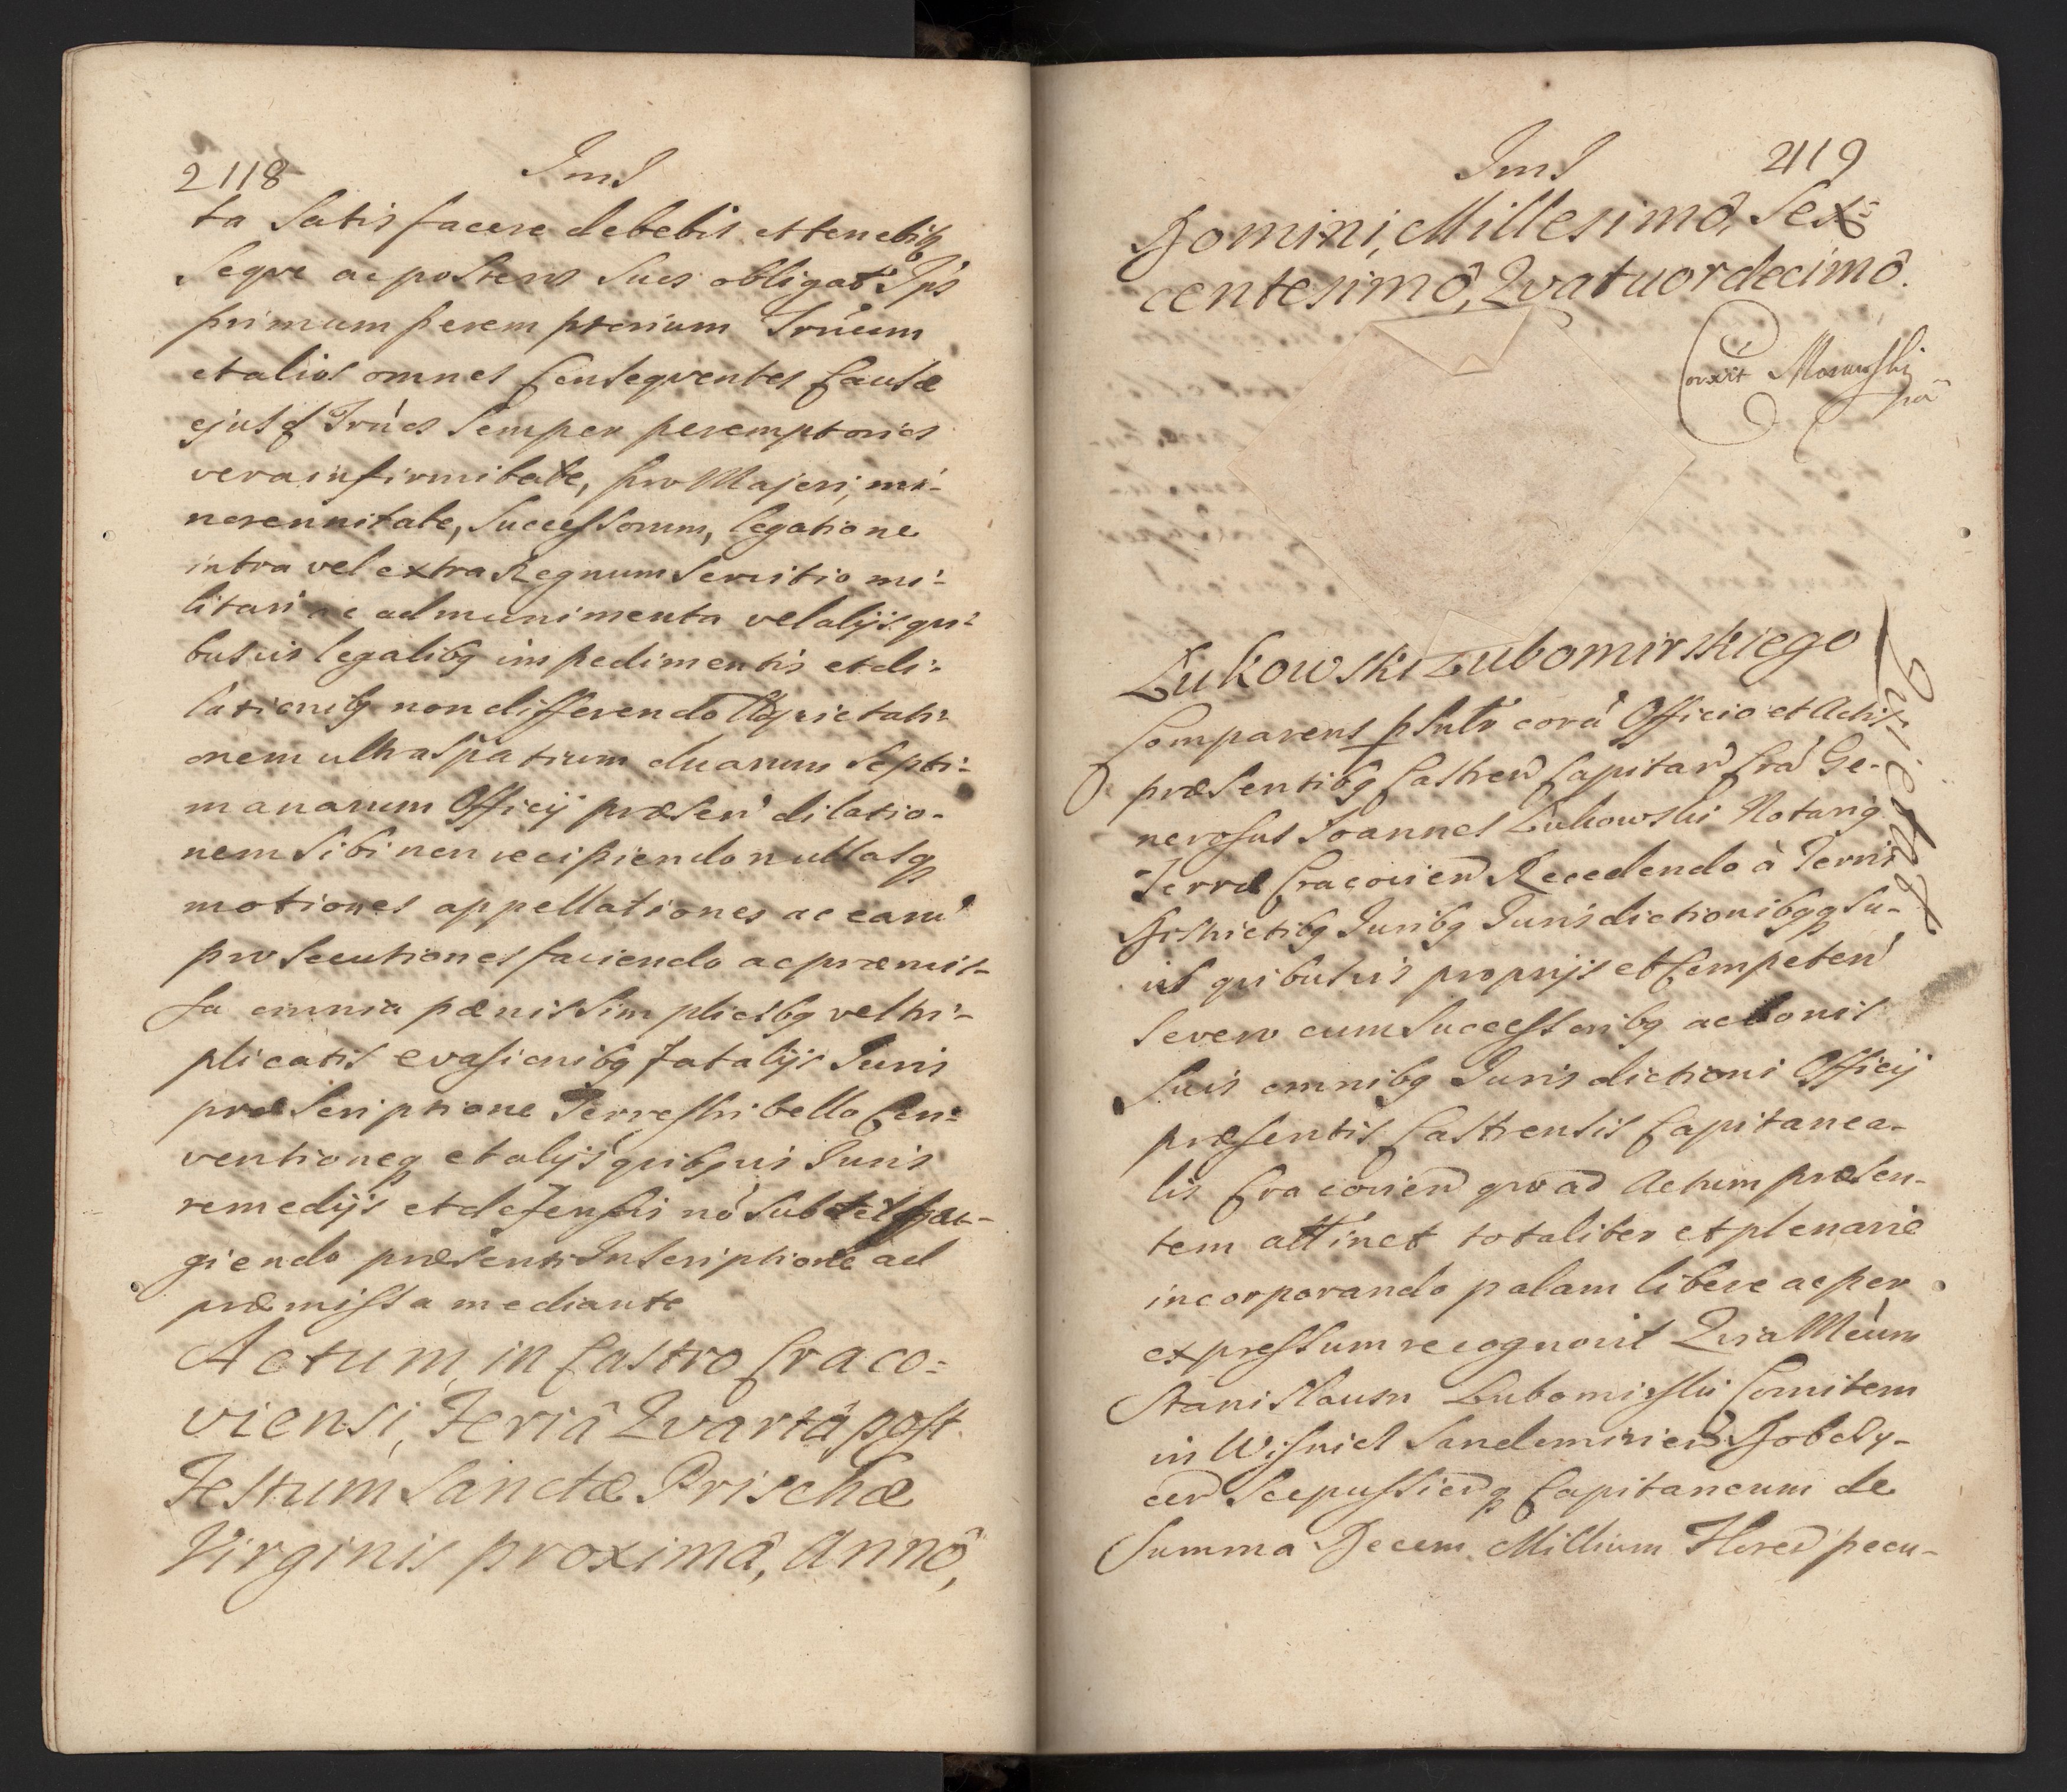 2118
ImJ
ta Satis facere debebit et tenebitq
Seqve ac posteros Suos obligat Ips
primum peremptorium Trnum
et alios omnes Conseqventes Causæ
ejusd Trnos Semper peremptorios
vera infirmitate, pro Majori, mi-
norennitate, Successorum, legatione
intra vel extra Regnum Servitio mi-
litari ac ad munimenta vel alijs qvi-
busvis legalibq impedimentis et di-
lationibq non differendo Qvietati-
onem ultra Spatium duarum Septi-
manarum Officij præsen dilatio-
nem Sibi non recipiendo nullasq
motiones appellationes ac earu
prosecutiones faciendo ac præmis-
sa omnia pænis Simplicibq vel tri-
plicatis evasionibq fatalijs Juris
præscriptione Terrestri bello Con-
ventioneq et alijs qvibqvis Juris
remedijs et defensis no Subterfu-
giendo præsenti Inscriptione ad
præmissa mediante
Actum, in Castro Craco-
viensi, Feriâ Qvartâ post
Festum Sanctæ Prischæ
Virginis proximâ, Annô,
ImJ
2119
Domini, Millesimô, Sex-
centesimô, Qvatuordecimô.
Corrxit
pa
Łukowski Lubomirskiego
Qvietat
Comparens psnlr corà Officio et Actis
præsentibq Castren Capitan Cra Ge-
nerosus Joannes Łukowski Notariq
Terræ Cracovien Recedendo à Terris
Districtibq Juribq Jurisdictionibqq Su-
is qvibusvis proprijs et Competen
Se vero cum Successoribq ac bonis
Suis omnibq Jurisdictioni Officij
præsentis Castrensis Capitanea-
lis Cracovien qvoad Actum præsen-
tem attinet totaliter et plenarie
incorporando palam libere ac per
expressum recognovit Qvia Mcum
Stanislaum Lubomirski Comitem
in Wisnicz Sandomirien Dobczy-
cen Scepussienq Capitaneum de
Summa Decem Millium Floren pecu-